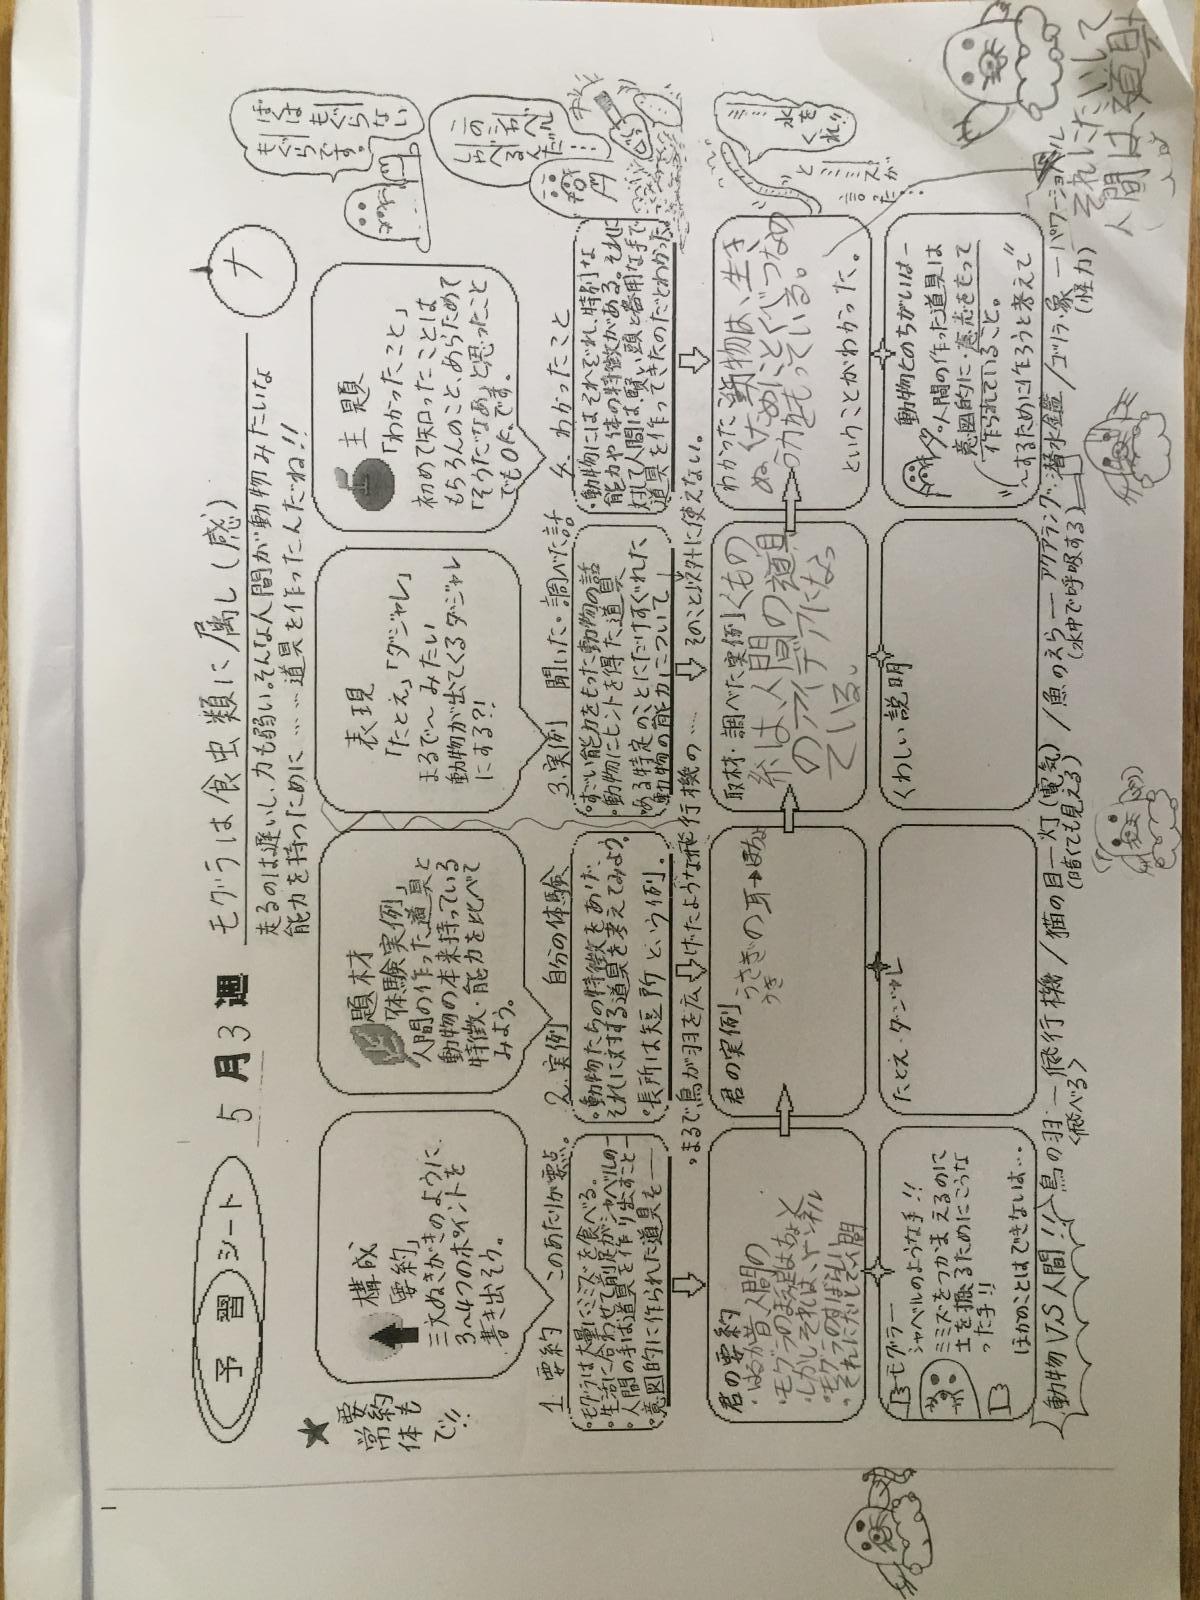 予習シート
5月3週
モグラは食虫類に属し(感)
ナ
走るのは遅いし、力も弱い。そんな人間が動物みたいな
能力を持つために……道具を作ったんだね!!
★要約
常体
でも!!
構成
「要約」
三文ぬきがきのように
3~4つのポイントを
書き出そう。
題材
「体験実例」
人間の作った道具と
動物の本来持っている
特徴・能力を比べて
みよう。
表現
「たとえ」「ダジャレ」
まるで~みたい
動物が出てくるダジャレ
にする?!
主題
「わかったこと」
初めて知ったことは
もちろんのこと、あらためて
「そうだなあ」と思ったこと
でもOK、です。
ぼくは もぐらない
もぐらです。
このシャベル
しゃべるんだ……
水をくれ!!
とミミズが
言った……
1.要約 このあたりが要点。
・モグラは大量にミミズを食べる。
・生活に合わせて前足がシャベルの―
・人間の手は道具を作り出すこと―
・意図的に作られた道具を――
2.実例 自分の体験
・動物たちの特徴をあげ、
それに対する道具を考えてみよう。
・長所は短所 という例。
3.実例 聞いた・調べた話
・すごい能力をもった動物の話
・動物にヒントを得た道具
・ある特定のことにだけすぐれた
動物の能力について―
4. わかったこと
・動物にはそれぞれ、特別な
能力や体の特徴がある。それに
対して人間は賢い頭と器用な手で
道具を作ってきたのだとわかった。
・まるで鳥が羽を広げたような飛行機の……
そのこと以外に使えない。
君の要約
・はるか昔人間の
・モグラのまえ足はちょ
・しかしそれは、トンネル
・モグラのすばらし
それにたいして人間
君の実例
うさぎの耳→ぼうえ
取材・調べた実例
くもの
糸は、人間の道具
のアイデアになっ
ている。
わかった
動物は、生き
ぬくためにとくべつなめ
の力をもっている。
ということがわかった。
モグラー
シャベルのような手!!
ミミズをつかまえるのに
土を掘るためにこうな
った手!!
ほかのことはできないは…
たとえ・ダジャレ
くわしい説明
動物とのちがいは―
人間の作った道具は
意図的に・意志をもって
作られていること。
"~するために作ろうと考えて"
動物VS人間!!
鳥の羽―飛行機/猫の目―灯(電気)/魚のえら――アクアラング・潜水艦/ゴリラ・象―パワーショベル
<飛べる>
(暗くても見える)
(水中で呼吸する)
(怪力)
それにたいして
人間は、道具